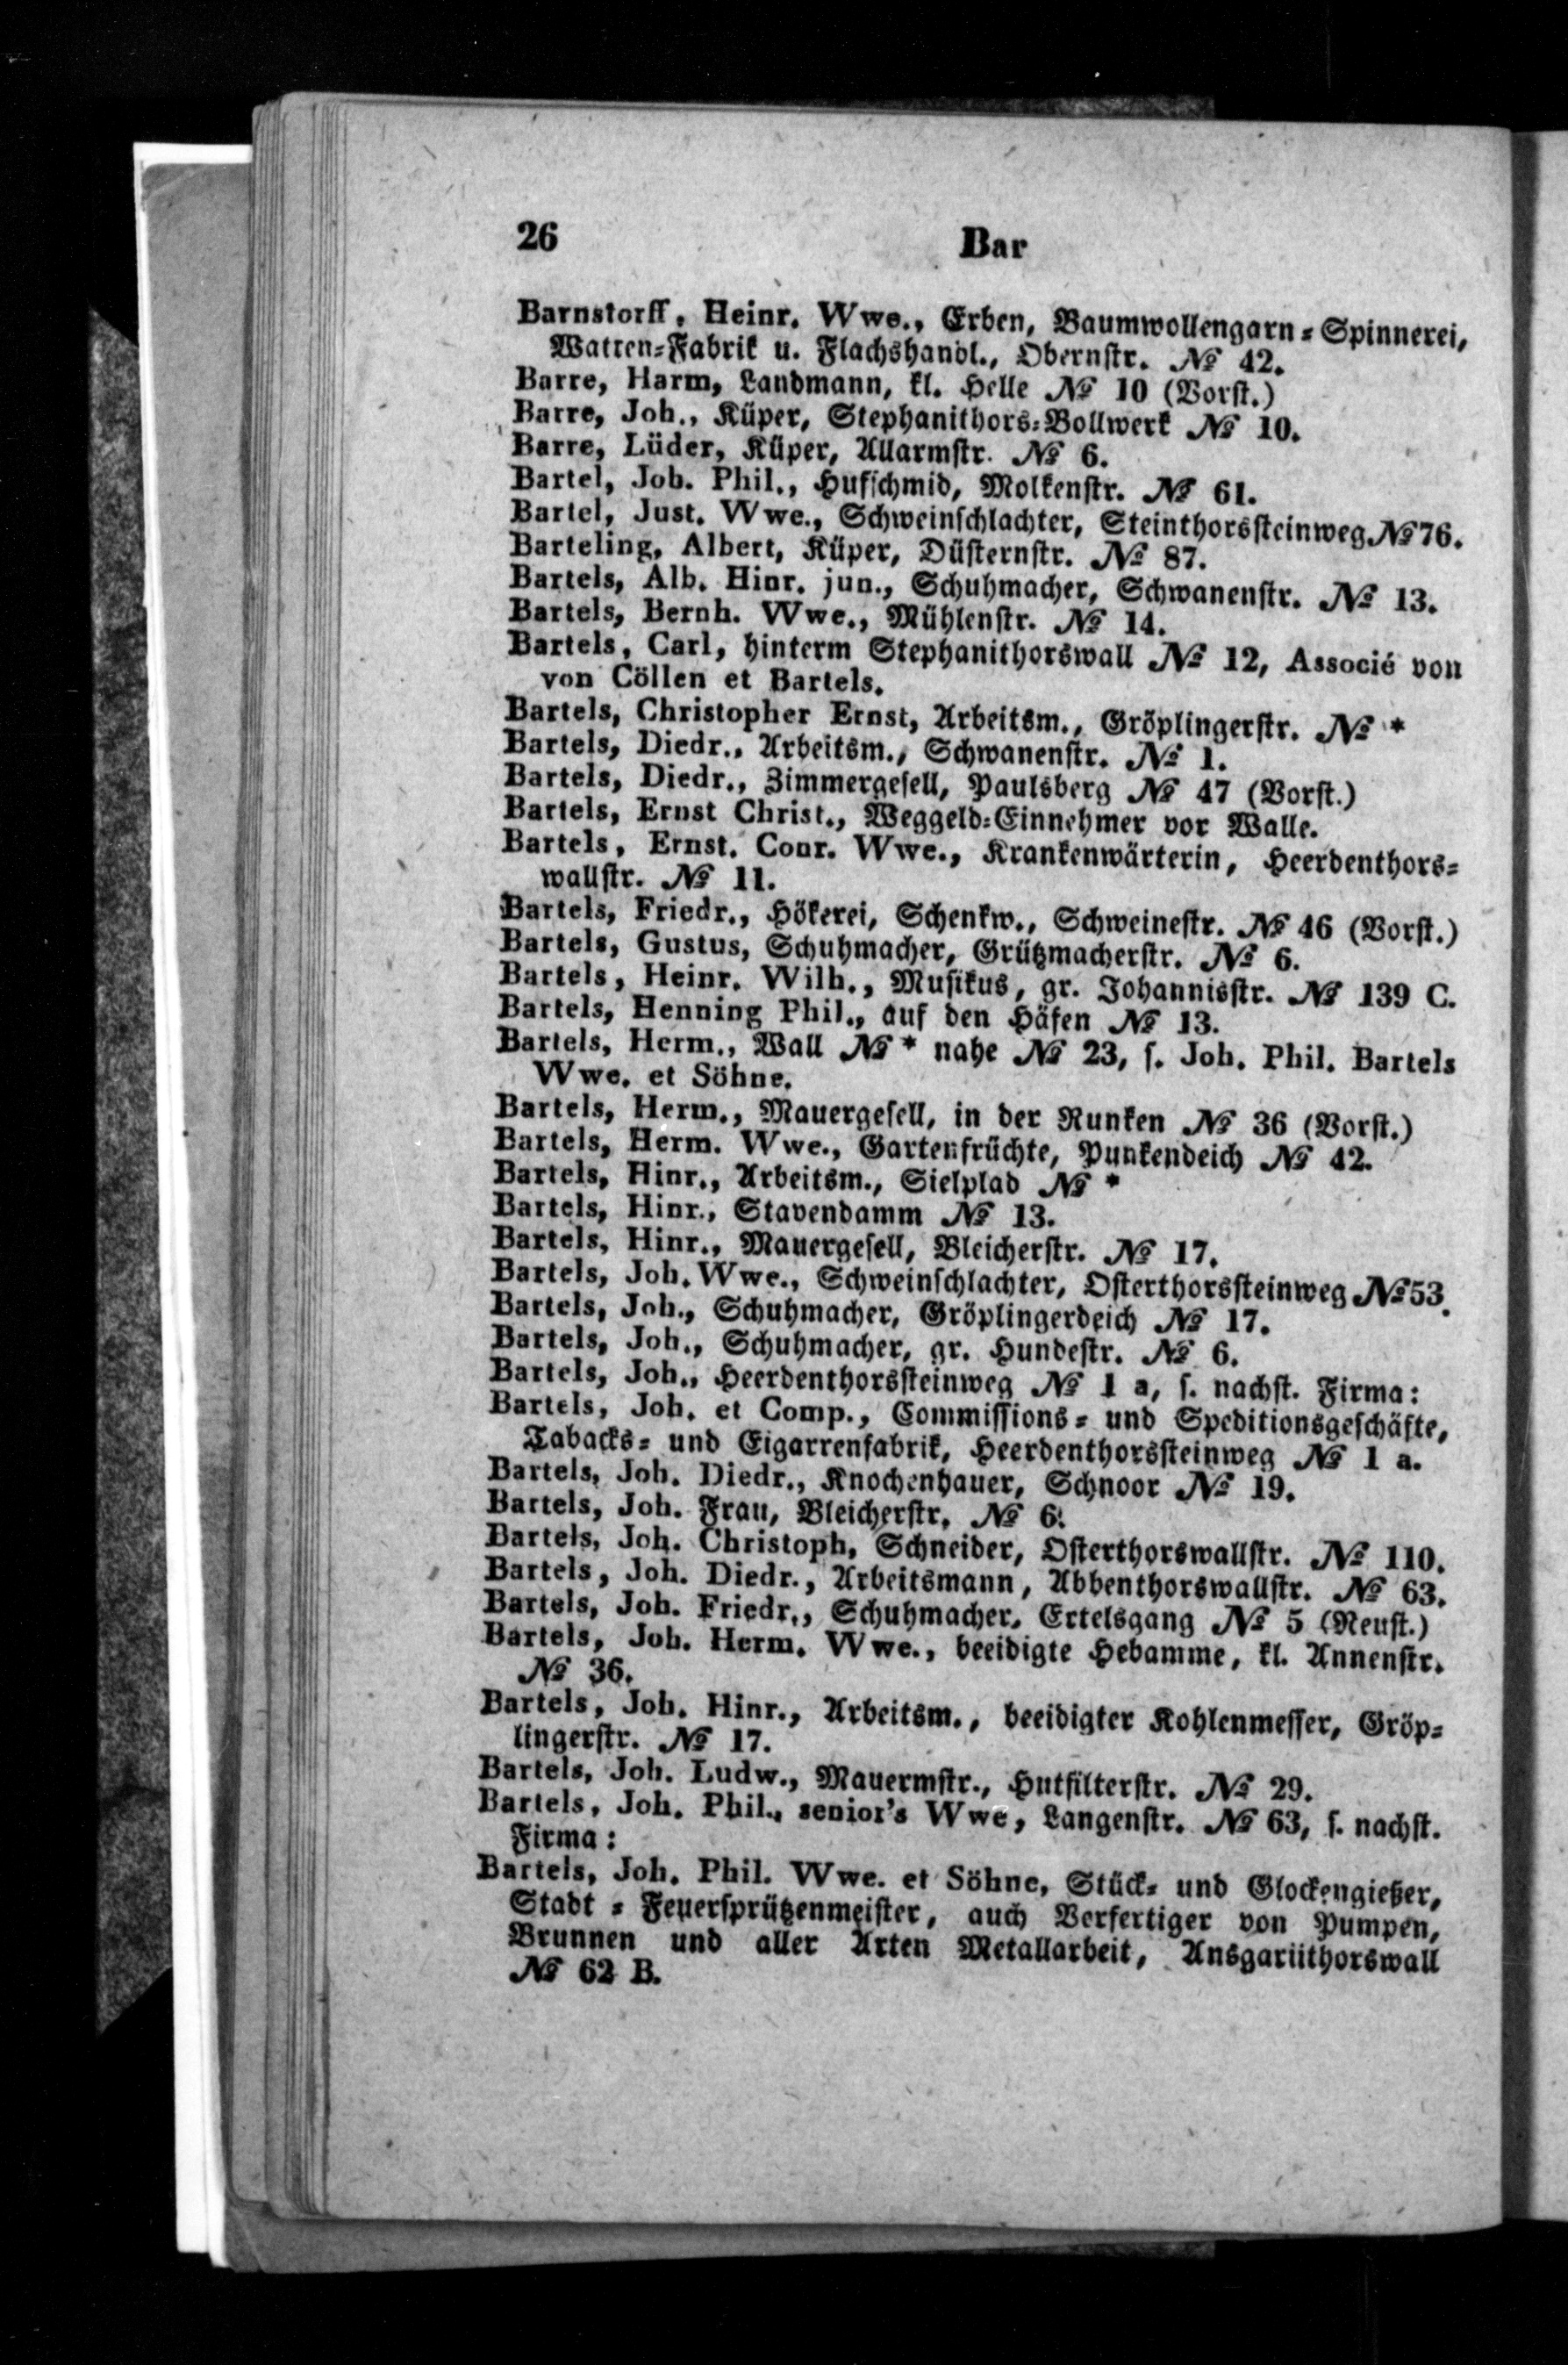 26 Bar
Barnstorff, Heinr. Wwe., Erben, Baumwollengarn-Spinnerei,
Watten-Fabrik u. Flachshandl., Obernstr. № 42.
Barre, Harm, Landmann, kl. Helle № 10 (Vorst.)
Barre, Joh., Küper, Stephanithors-Bollwerk № 10.
Barre, Lüder, Küper, Allarmstr. № 6.
Bartel, Joh. Phil., Hufschmid, Molkenstr. № 61.
Bartel, Just. Wwe., Schweinschlachter, Steinthorssteinweg № 76.
Barteling, Albert, Küper, Düsternstr. № 87.
Bartels, Alb. Hinr. jun., Schuhmacher, Schwanenstr. № 13.
Bartels, Bernh. Wwe., Mühlenstr. № 14.
Bartels, Carl, hinterm Stephanithorswall № 12, Associé von
von Cöllen et Bartels.
Bartels, Christopher Ernst, Arbeitsm., Gröplingerstr. № *
Bartels, Diedr., Arbeitsm., Schwanenstr. № 1.
Bartels, Diedr., Zimmergesell, Paulsberg № 47 (Vorst.)
Bartels, Ernst Christ., Weggeld-Einnehmer vor Walle.
Bartels, Ernst. Conr. Wwe., Krankenwärterin, Heerdenthors-
wallstr. № 11.
Bartels, Friedr., Hökerei, Schenkw., Schweinestr. № 46 (Vorst.)
Bartels, Gustus, Schuhmacher, Grützmacherstr. № 6.
Bartels, Heinr. Wilh., Musikus, gr. Johannisstr. № 139 C.
Bartels, Henning Phil., auf den Häfen № 13.
Bartels, Herm., Wall № * nahe № 23, s. Joh. Phil. Bartels
Wwe. et Söhne.
Bartels, Herm., Mauergesell, in der Runken № 36 (Vorst.)
Bartels, Herm. Wwe., Gartenfrüchte, Punkendeich № 42.
Bartels, Hinr., Arbeitsm., Sielplad № *
Bartels, Hinr., Stavendamm № 13.
Bartels, Hinr., Mauergesell, Bleicherstr. № 17.
Bartels, Joh. Wwe., Schweinschlachter, Osterthorssteinweg № 53.
Bartels, Joh., Schuhmacher, Gröplingerdeich № 17.
Bartels, Joh., Schuhmacher, gr. Hundestr. № 6.
Bartels, Joh., Heerdenthorssteinweg № 1 a, s. nachst. Firma:
Bartels, Joh. et Comp., Commissions- und Speditionsgeschäfte,
Tabacks- und Cigarrenfabrik, Heerdenthorssteinweg № 1 a.
Bartels, Joh. Diedr., Knochenhauer, Schnoor № 19.
Bartels, Joh. Frau, Bleicherstr. № 6.
Bartels, Joh. Christoph, Schneider, Osterthorswallstr. № 110.
Bartels, Joh. Diedr., Arbeitsmann, Abbenthorswallstr. № 63.
Bartels, Joh. Friedr., Schuhmacher, Ertelsgang № 5 (Neust.)
Bartels, Joh. Herm. Wwe., beeidigte Hebamme, kl. Annenstr.
№ 36.
Bartels, Joh. Hinr., Arbeitsm., beeidigter Kohlenmesser, Gröp-
lingerstr. № 17.
Bartels, Joh. Ludw., Mauermstr., Hutfilterstr. № 29.
Bartels, Joh. Phil., senior's Wwe, Langenstr. № 63, s. nachst.
Firma:
Bartels, Joh. Phil. Wwe. et Söhne, Stück- und Glockengießer,
Stadt-Feuersprützenmeister, auch Verfertiger von Pumpen,
Brunnen und aller Arten Metallarbeit, Ansgariithorswall
№ 62 B.